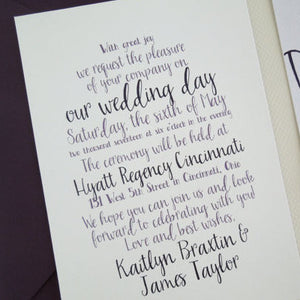 With great joy
we request the pleasure
of your company on
our wedding day
Saturday, the sixth of May
two thousand seventeen at six o'clock in the evening
The ceremony will be held at
Hyatt Regency Cincinnati
151 West 5th Street in Cincinnati, Ohio
We hope you can join us and look
forward to celebrating with you!
Love and best wishes,
Kaitlyn Braxtin &
James Taylor